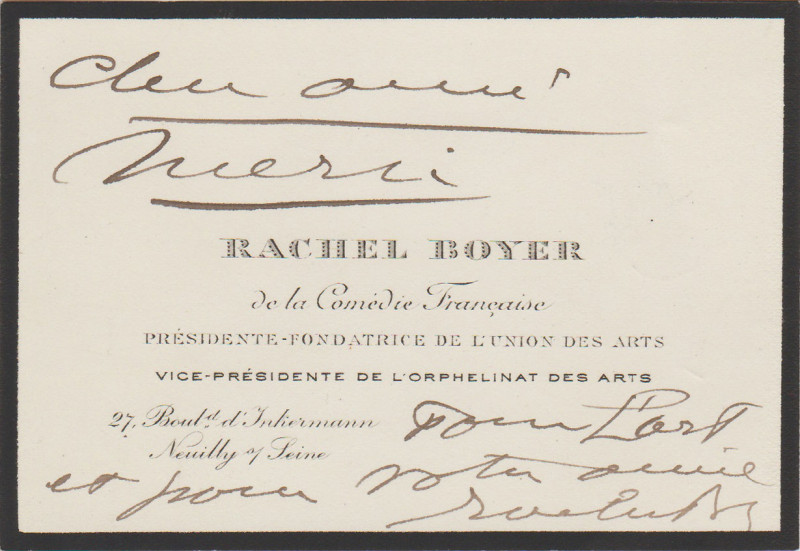 Cher ami
Merci
RACHEL BOYER
de la Comédie Française
PRÉSIDENTE-FONDATRICE DE L'UNION DES ARTS
VICE-PRÉSIDENTE DE L'ORPHELINAT DES ARTS
27, Boul.d d'Inkermann
Neuilly s/ Seine
Pour L'art
et pour votre amie